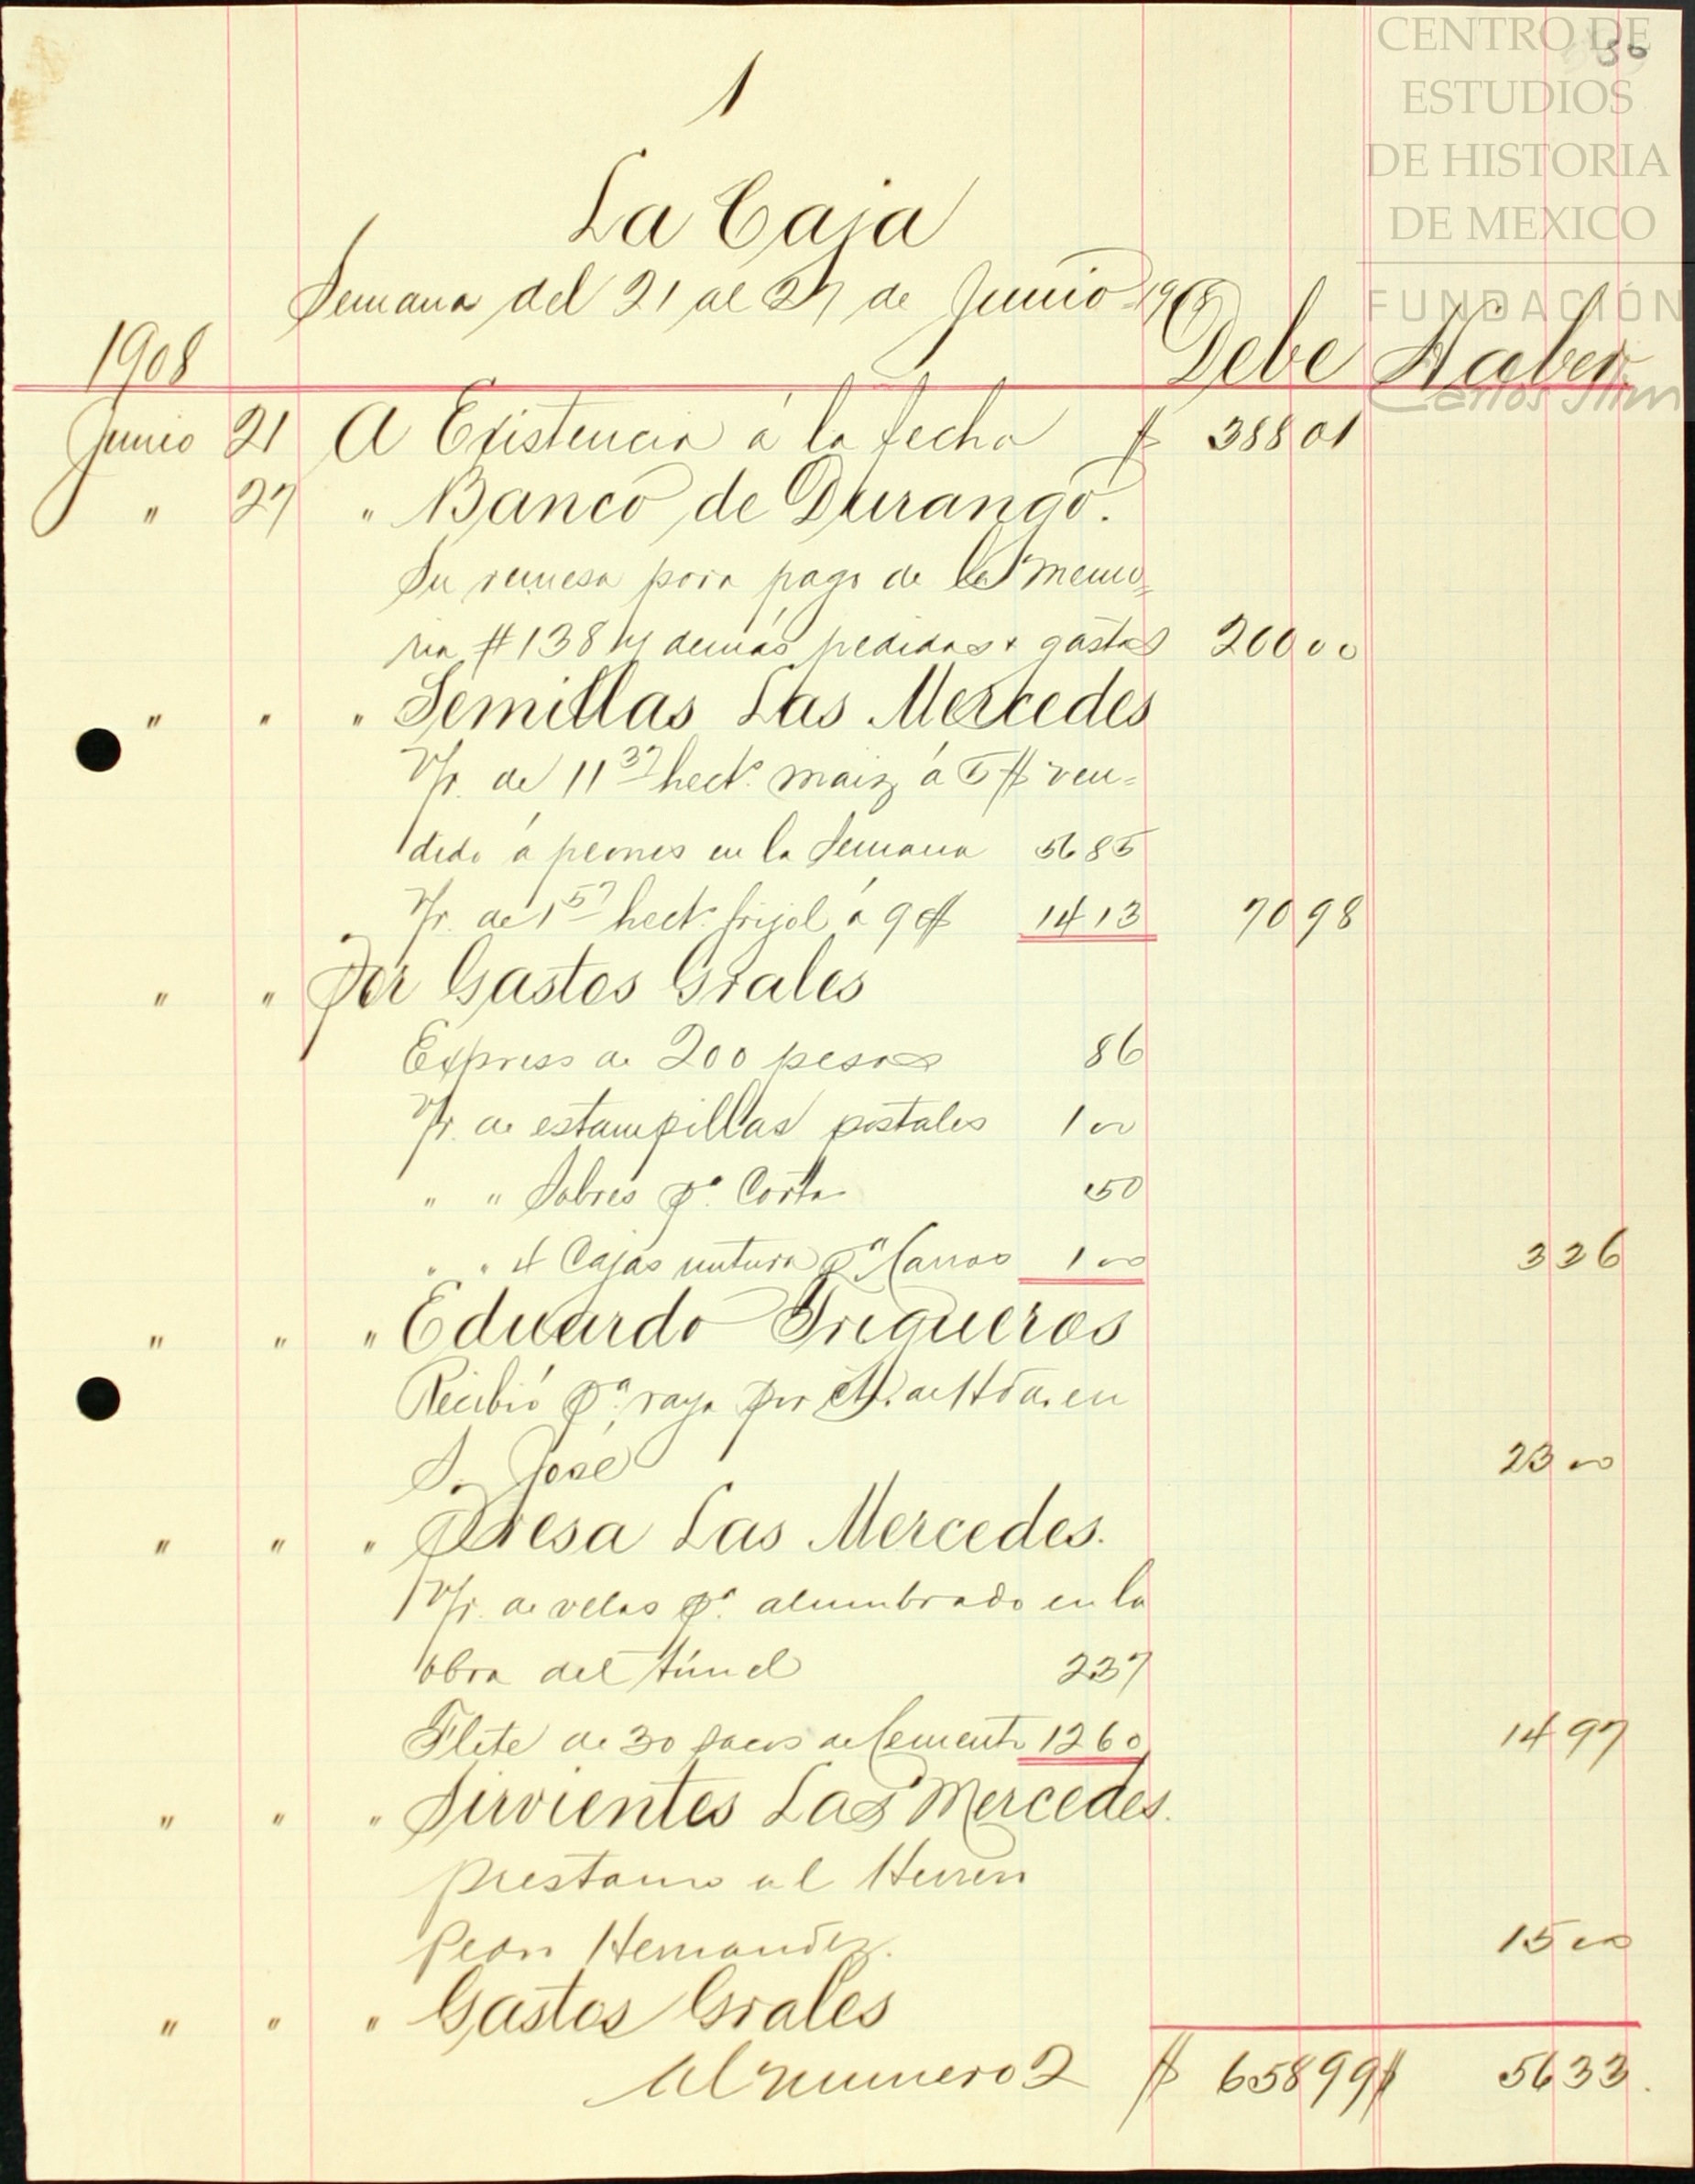 CENTRO DE
ESTUDIOS
DE HISTORIA
DE MEXICO
FUNDACIÓN
Carlos Slim
30
1
La Caja
Semana del 21 al 27 de Junio 1908
1908 Debe Haber
Junio 21 A Existencia á la fecha $ 388 01
" 27 " Banco de Durango.
Su remesa para pago de la memo=
ria #138 y demás pedidos & gastos 200 00
" " " Semillas Las Mercedes
V/r. de 11 37 hect.s maiz á 5$ ven=
dido á peones en la Semana 56 85
V/r. de 1 57 hect.s frijol á 9$ 14 13 70 98
" " Por Gastos Grales
Express de 200 pesos 86
V/r. de estampillas postales 1 00
" " Sobres pa. Carta 50
" " 4 Cajas untura pa. Carros 1 00 3 36
" " " Eduardo Trigueros
Recibió pa. raya por de Hda. en
S. José 23 00
" " " Presa Las Mercedes.
V/r. de velas pa. alumbrado en la
obra del túnel 2 37
Flete de 30 sacos de Cemento 12 60 14 97
" " " Sirvientes Las Mercedes.
Prestamo al
Hernandez. 15 00
" " " Gastos Grales
Al numero 2 $ 658 99 $ 56 33.